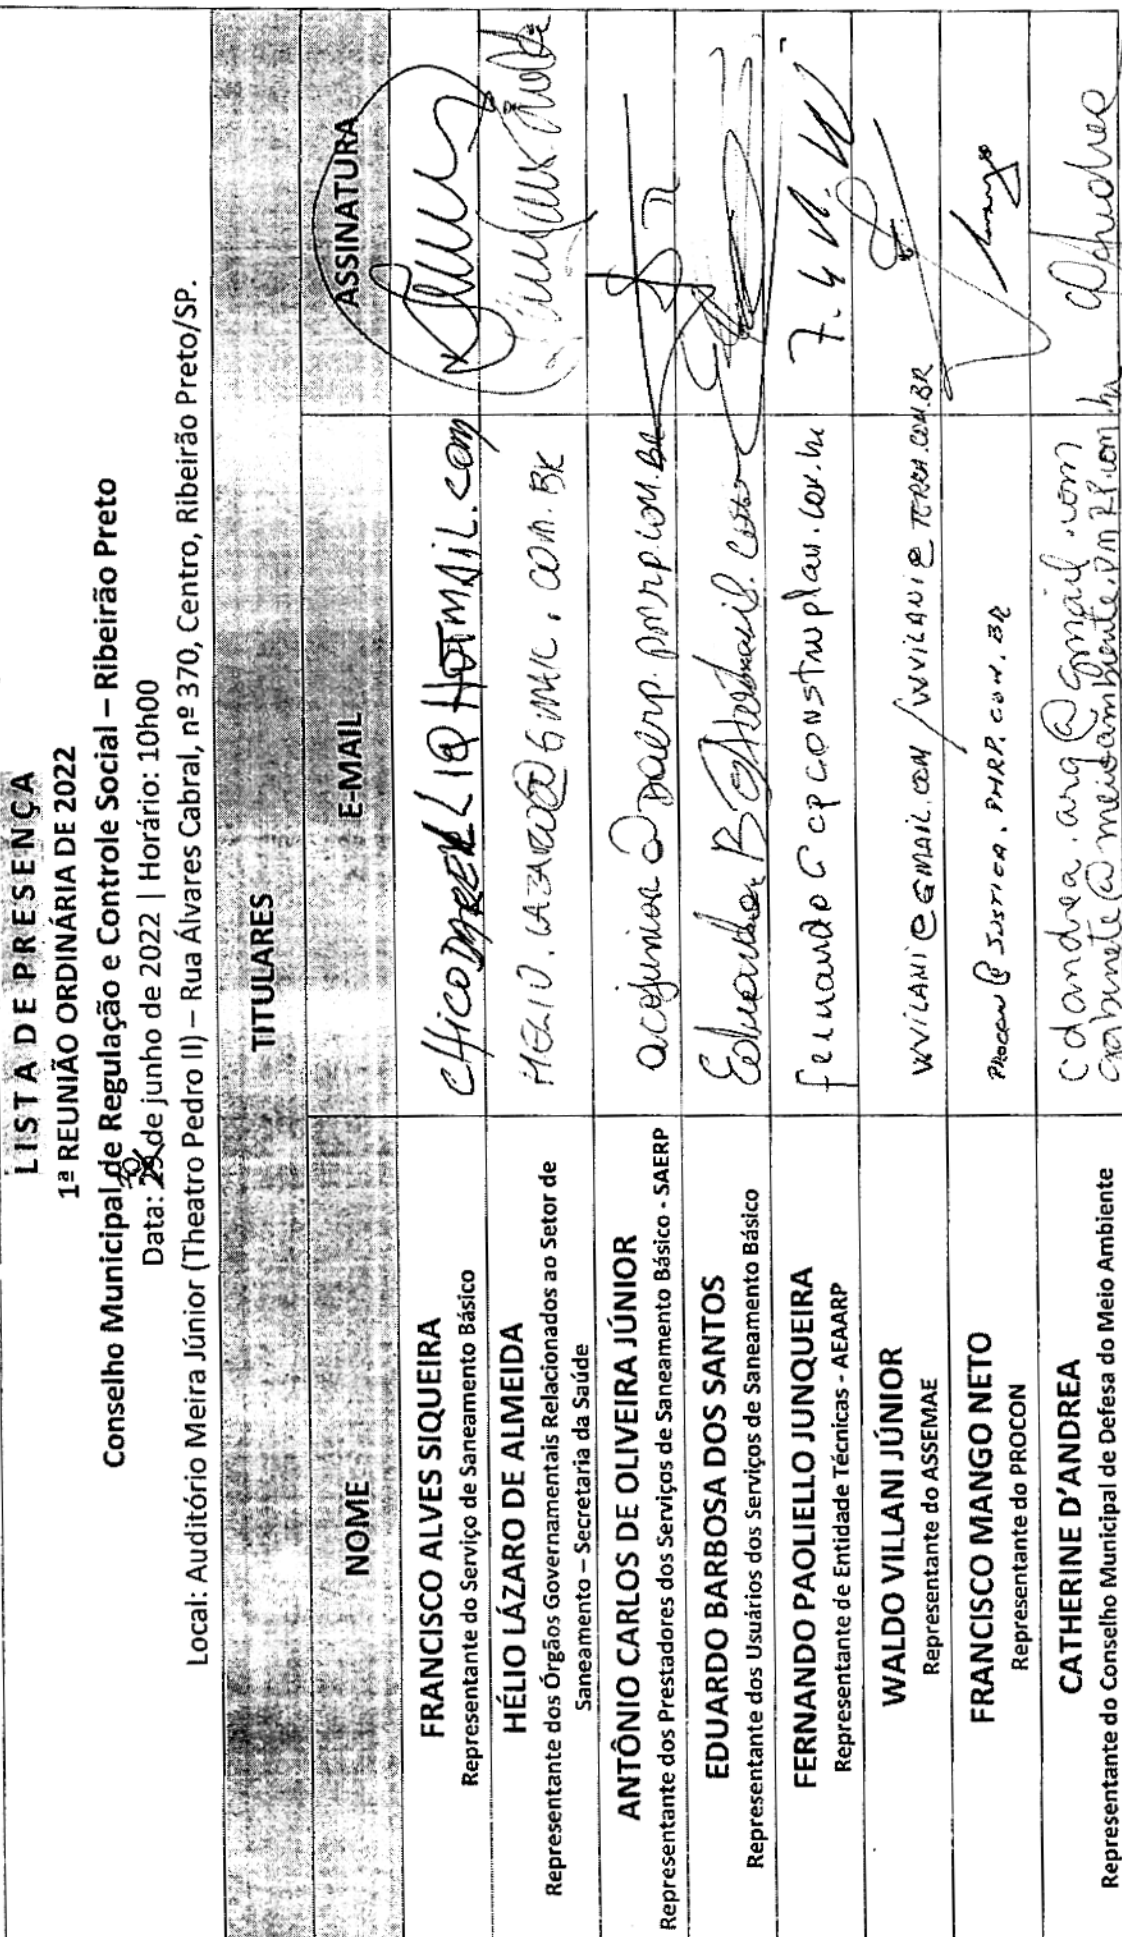 LISTA DE PRESENÇA
1ª REUNIÃO ORDINÁRIA DE 2022
Conselho Municipal de Regulação e Controle Social – Ribeirão Preto
Data: de junho de 2022 | Horário: 10h00
Local: Auditório Meira Júnior (Theatro Pedro II) – Rua Álvares Cabral, nº 370, Centro, Ribeirão Preto/SP.
TITULARES
NOME E-MAIL ASSINATURA
FRANCISCO ALVES SIQUEIRA
Representante do Serviço de Saneamento Básico
HÉLIO LÁZARO DE ALMEIDA
Representante dos Órgãos Governamentais Relacionados ao Setor de
Saneamento – Secretaria da Saúde
ANTÔNIO CARLOS DE OLIVEIRA JÚNIOR
Representante dos Prestadores dos Serviços de Saneamento Básico - SAERP
acojunior@daerp.pmrp.com.br
EDUARDO BARBOSA DOS SANTOS
Representante dos Usuários dos Serviços de Saneamento Básico
FERNANDO PAOLIELLO JUNQUEIRA
Representante de Entidade Técnicas - AEAARP
fernando@cpconstruplan.com.br
WALDO VILLANI JÚNIOR
Representante do ASSEMAE
WVILANI@GMAIL.COM / WVILANI@TERRA.COM.BR
FRANCISCO MANGO NETO
Representante do PROCON
PROCON@JUSTICA.PMRP.COM.BR
CATHERINE D'ANDREA
Representante do Conselho Municipal de Defesa do Meio Ambiente
cdandrea.arq@gmail.com
gabinete@meioambiente.pmrp.com.br